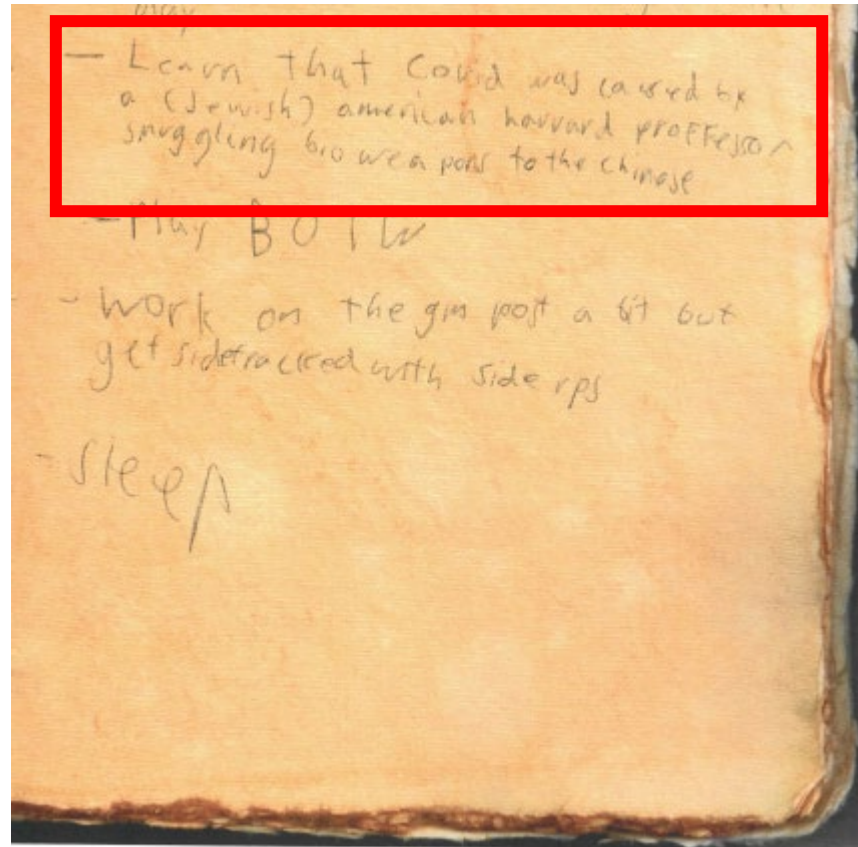 - Learn that Covid was caused by
a (Jewish) american harvard proffessor
smuggling bioweapons to the chinese
- Play BOTW
- work on the gm post a bit but
get sidetracked with side rps
- sleep